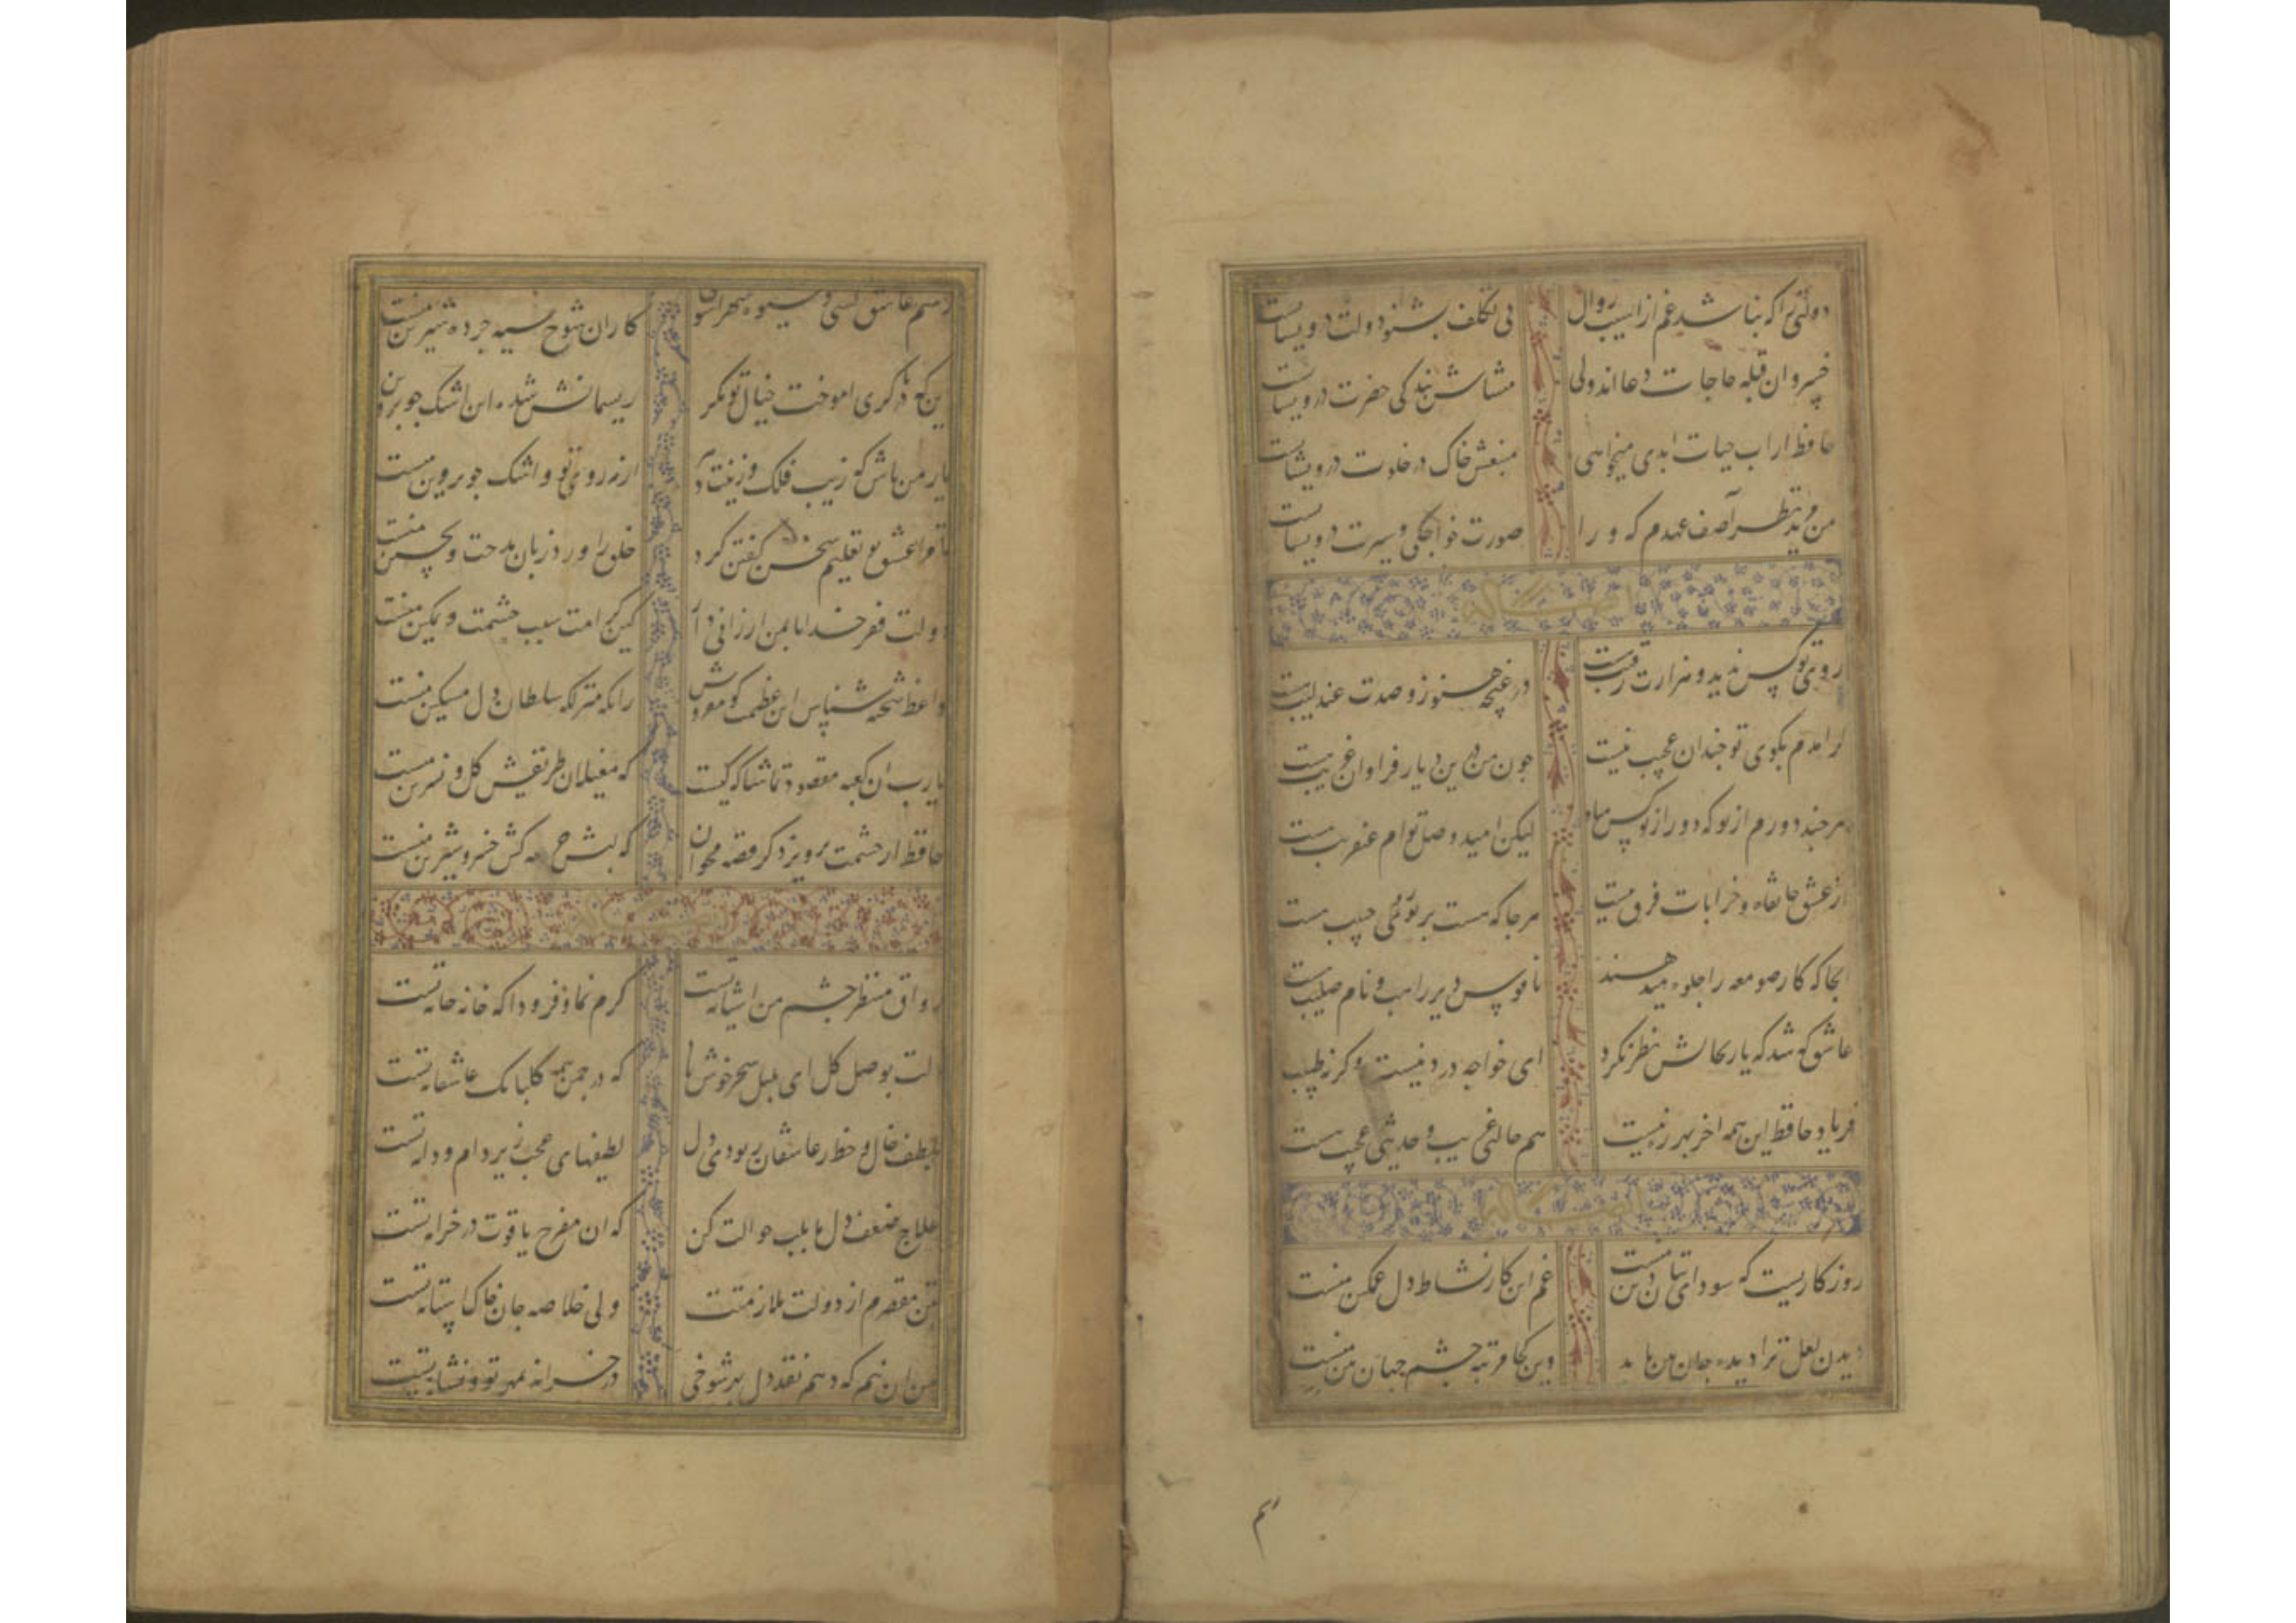 دولتی را که نباشد غم از آسیب زوال بی تکلف بشنو دولت درویشانست
خسروان قبله حاجات دعااند ولی منشاش بندگی حضرت درویشانست
حافظ ار اب حیات ابدی میخواهی منبعش خاک در خلوت درویشانست
من مرید نظر آصف عهدم که ورا صورت خواجگی و سیرت درویشانست
ایضا له
روی تو کس ندید و هزارت رقیب هست در غنچه هنوز و صدت عندلیب هست
گر امدم بکوی تو جندان عجیب نیست جون من درین دیار فراوان غریب هست
هرجند دورم از تو که دور از تو کس مباد لیکن امید وصل توام عنقریب هست
در عشق خانقاه و خرابات فرق نیست هرجا که هست پرتو روی حبیب هست
انجا که کار صومعه را جلوه میدهند ناقوس دیر راهب و نام صلیب هست
عاشق که شد که یار بحالش نظر نکرد ای خواجه درد نیست وگرنه طبیب هست
فریاد حافظ این همه اخر بهرزه نیست هم حالتی غریب و حدیثی عجیب هست
ایضا له
روزکاریست که سودای بتان دین منست غم این کار نشاط دل غمکین منست
دیدن لعل ترا دیده جان بین باید وین کجا مرتبه جشم جهان بین منست
هم
رسم عاشق کشی و شیوه شهراشوبی کاران شوخ سیه جرده شیرین منست
یار من باش که زیب فلک و زینت دهر از مه روی تو و اشک جو پروین منست
تا مرا عشق تو تعلیم سخن کفتن کرد خلق را ورد زبان مدحت و تحسین منست
دولت فقر خدایا بمن ارزانی دار کین کرامت سبب حشمت و تمکین منست
واعظ شحنه شناس این عظمت کو مفروش زانکه منزلکه سلطان دل مسکین منست
یارب ان کعبه مقصود تماشاکه کیست که مغیلان طریقش کل و نسرین منست
حافظ از حشمت پرویز دکر قصه مخوان که لبش جرعه کش خسرو شیرین منست
ایضا له
رواق منظر جشم من اشیانه تست کرم نما و فرود ا که خانه خانه تست
دلت بوصل کل ای بلبل سحر خوش باد که در جمن همه کلبانک عاشقانه تست
بلطف خال و خط از عاشقان ربودی دل لطیفهای عجب زیر دام و دانه تست
علاج ضعف دل ما بلب حوالت کن که ان مفرح یاقوت در خزانه تست
بتن مقصرم از دولت ملازمتت ولی خلاصه جان خاک استانه تست
من ان نیم که دهم نقد دل بهر شوخی در خزانه بمهر تو و نشانه تست